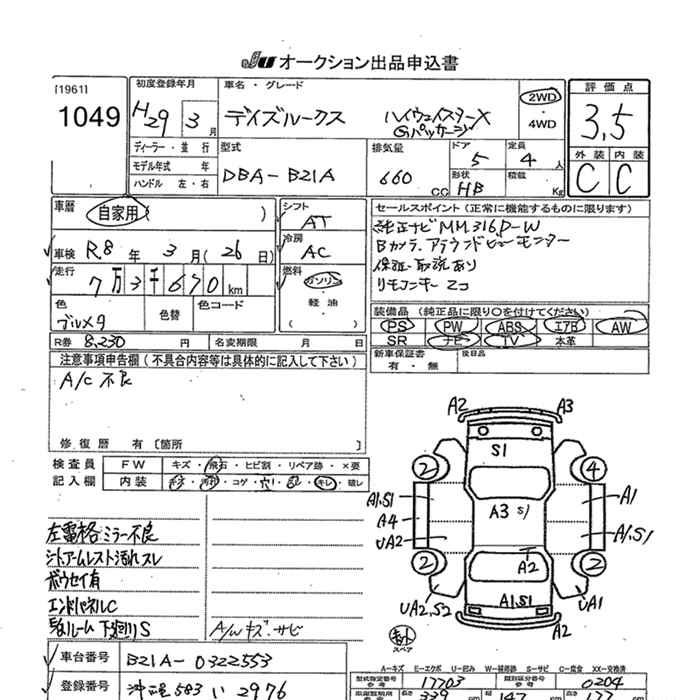 JU オークション出品申込書
[1961]
1049
初度登録年月
H29 3 月
ディーラー・並行
モデル年式 年
ハンドル 左・右
車名・グレード
デイズルークス ハイウェイスターX
Gパッケージ
2WD
・
4WD
評価点
3.5
外装 内装
C C
型式
DBA-B21A
排気量
660 CC
ドア
5
定員
4 人
形状
HB
積載
Kg
車歴 (自家用)
車検 R.8 年 3 月 (26 日)
走行
7万3千670 km
色
ブルメタ
色替
色コード
シフト
AT
冷房
AC
燃料
ガソリン
・
軽油
( )
R券 8,230 円
名変期限 月 日
セールスポイント(正常に機能するものに限ります)
純正ナビMM316D-W
Bカメラ アラウンドビューモニター
保証・取説あり
リモコンキー 2コ
装備品(純正品に限り○を付けてください)
PS PW ABS エアB AW
SR ナビ TV 本革
新車保証書
有・無
後日品
注意事項申告欄(不具合内容等は具体的に記入して下さい)
A/C 不良
修復歴 有〔箇所 〕
検査員
記入欄
FW キズ・飛石・ヒビ割・リペア跡・×要
内装 コゲ・穴・キレ・破レ
左電格ミラー不良
シートアームレスト汚れスレ
ボウセイ有
エンドパネルC
下廻りS
A/Wキズ・サビ
A2 A3
S1
2 4
A1.S1
A4
UA2
A3 S1
A1
A1.S1
2 2
A2
UA2.S2
A1.S1
UA1
A2
スペア
A-キズ E-エクボ U-凹み W-補修跡 S-サビ C-腐食 XX-交換済
車台番号 B21A-0322553
登録番号 沖縄583 い 2976
型式指定番号
参考
17703
類別区分番号
参考
0204
長さ 339 cm
幅 147 cm
高さ 177 cm